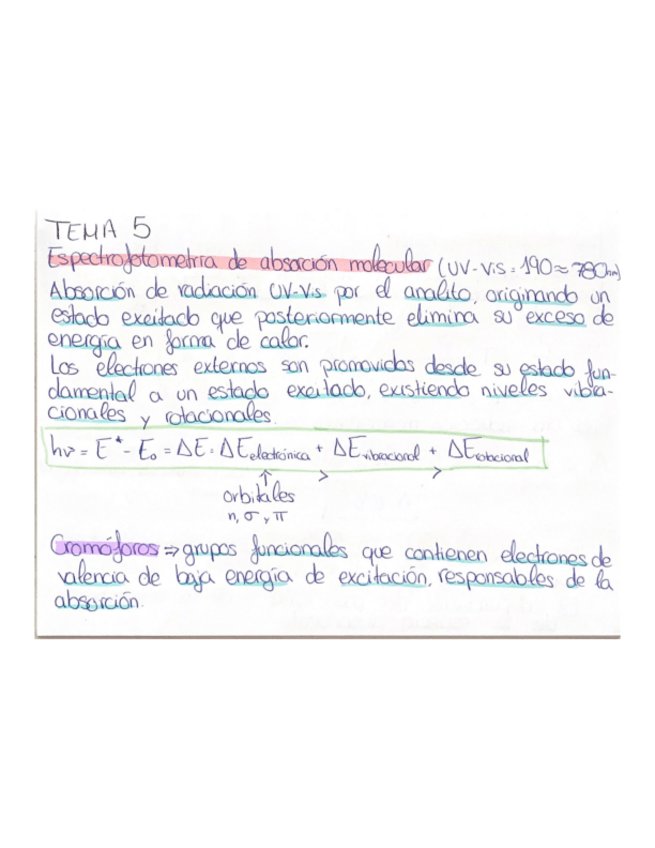 TEMA 5
Espectrofotometria de absorción molecular (UV-Vis: 190≈780nm)
Absorción de radiación UV-Vis por el analito, originando un
estado excitado que posteriormente elimina su exceso de
energía en forma de calor.
Los electrones externos son promovidos desde su estado fun-
damental a un estado excitado, existiendo niveles vibra-
cionales y rotacionales.
hν = E* - E₀ = ΔE = ΔEelectrónica + ΔEvibracional + ΔErotacional
↑ > >
orbitales
n, σ, π
Cromóforos ⇒ grupos funcionales que contienen electrones de
valencia de baja energía de excitación, responsables de la
absorción.